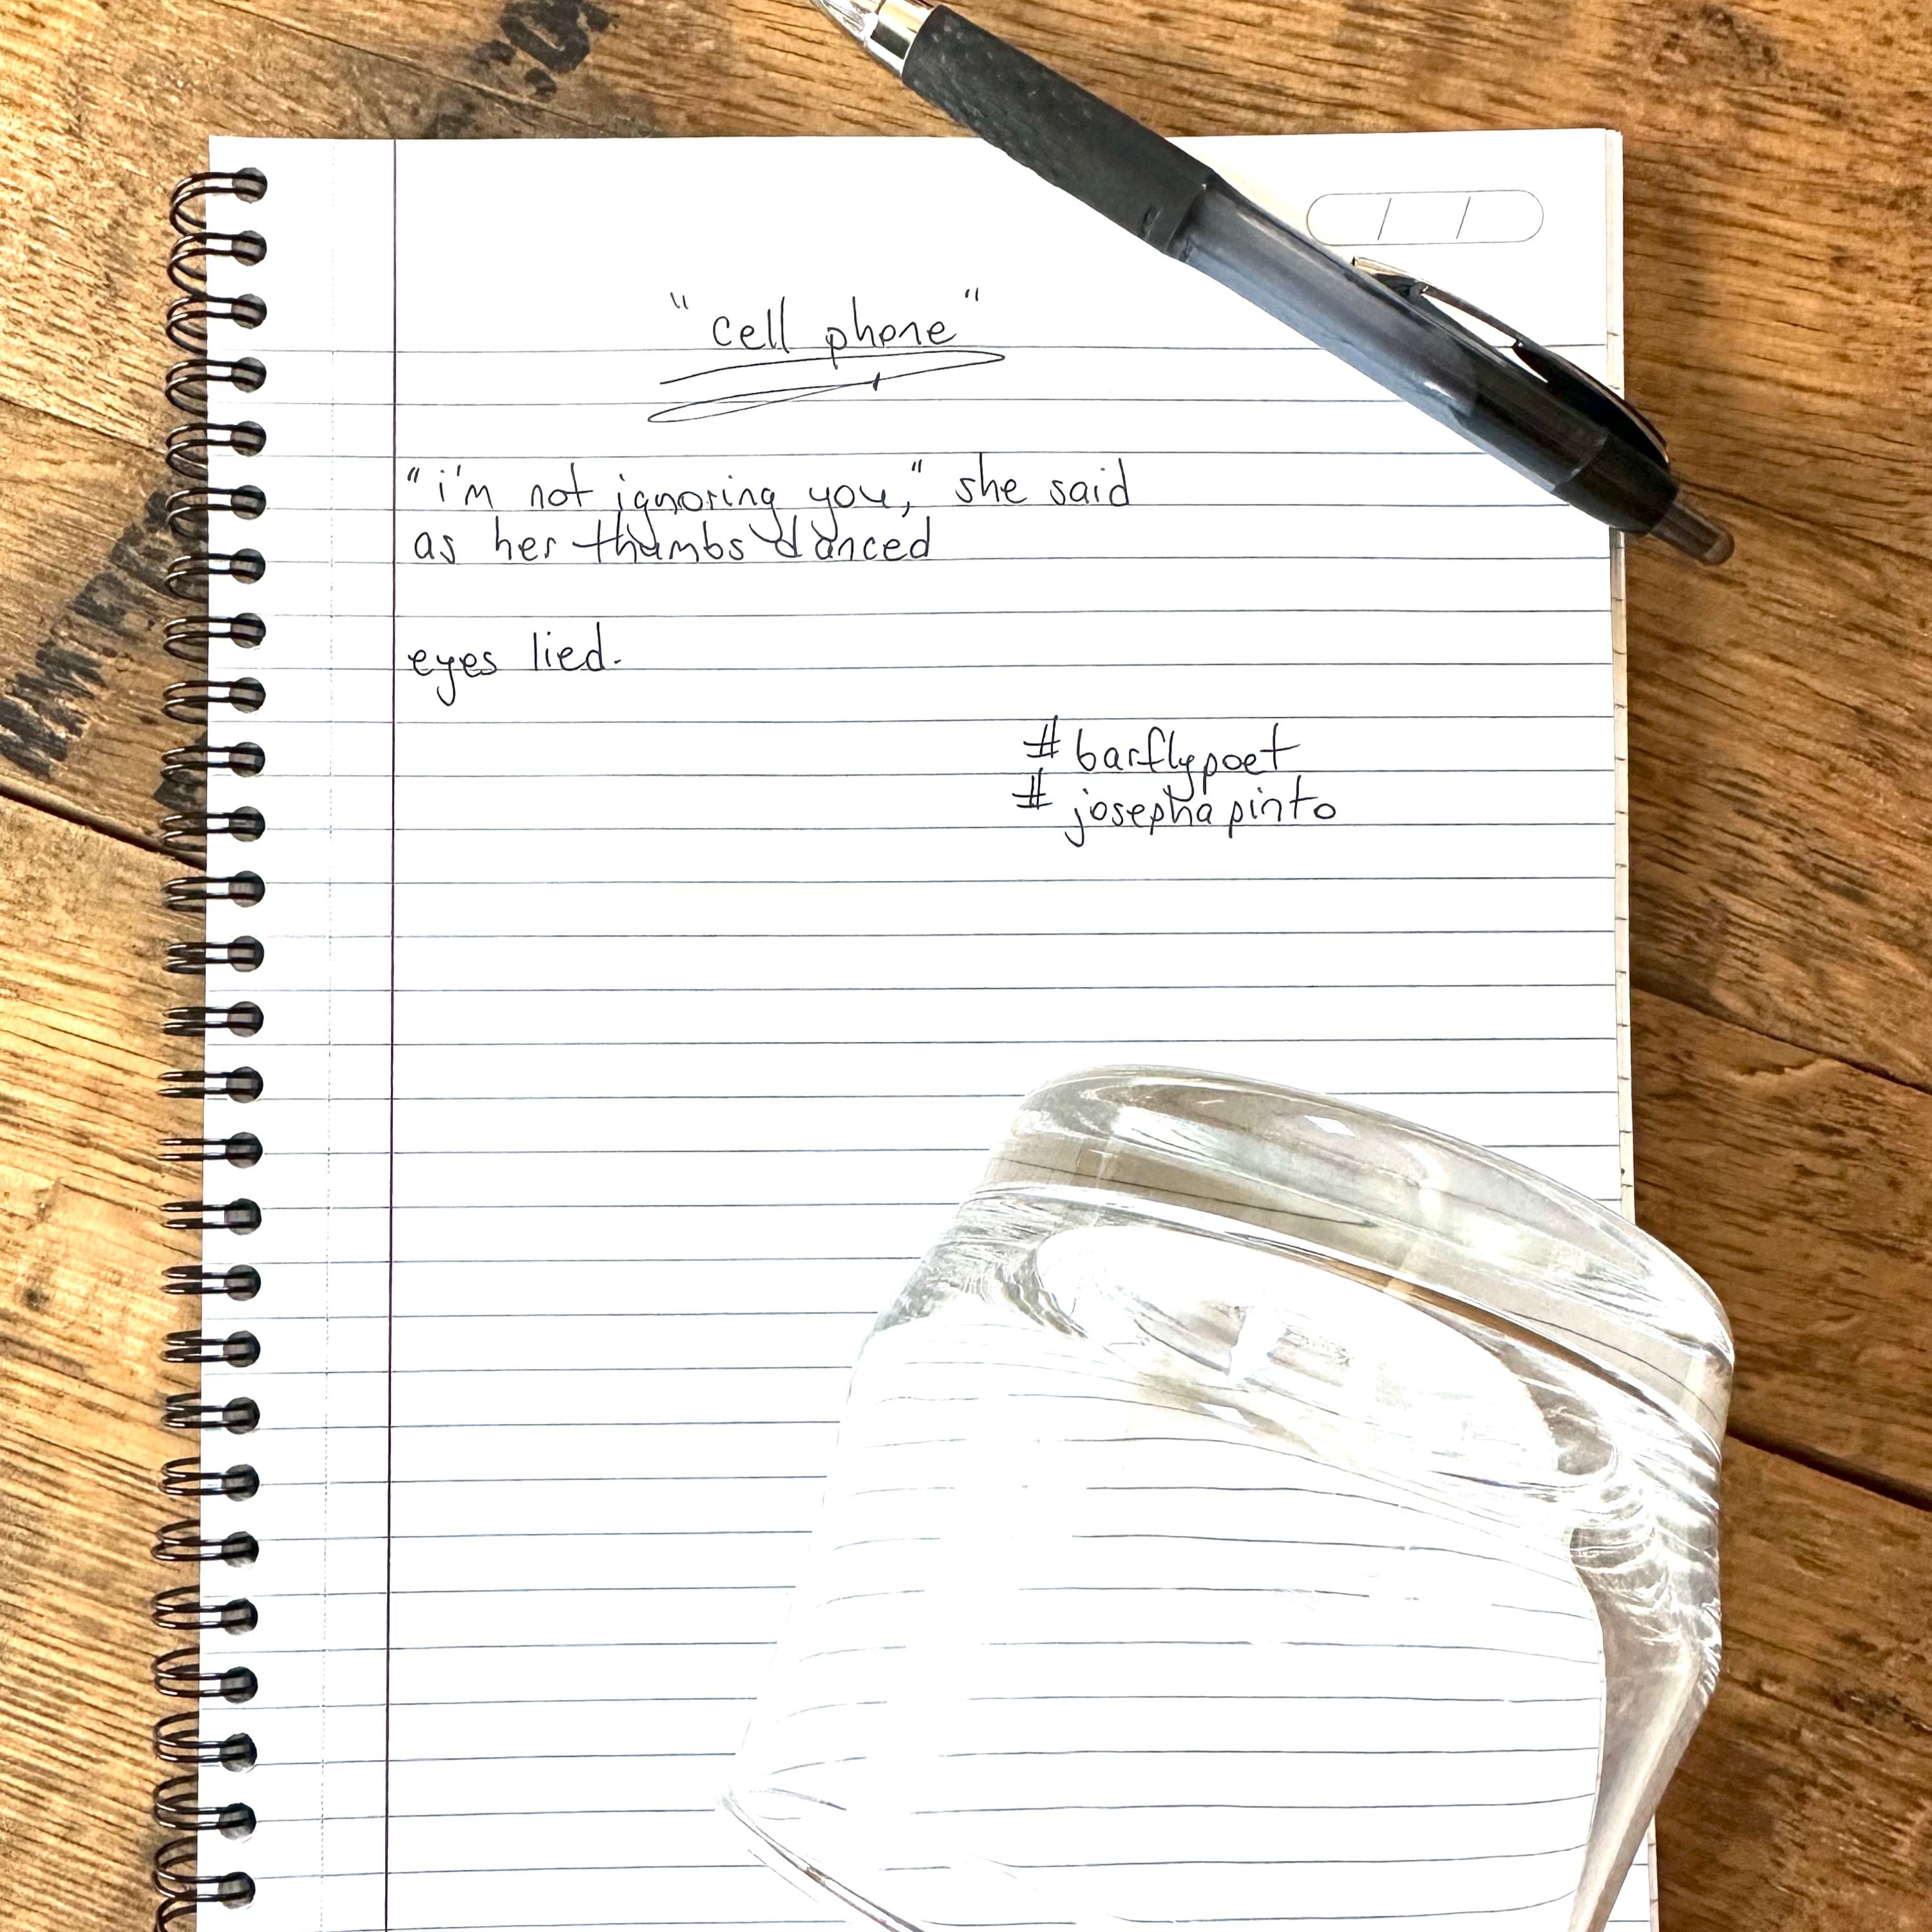 "cell phone"
"i'm not ignoring you," she said
as her thumbs danced
eyes lied.
#barflypoet
#josephapinto